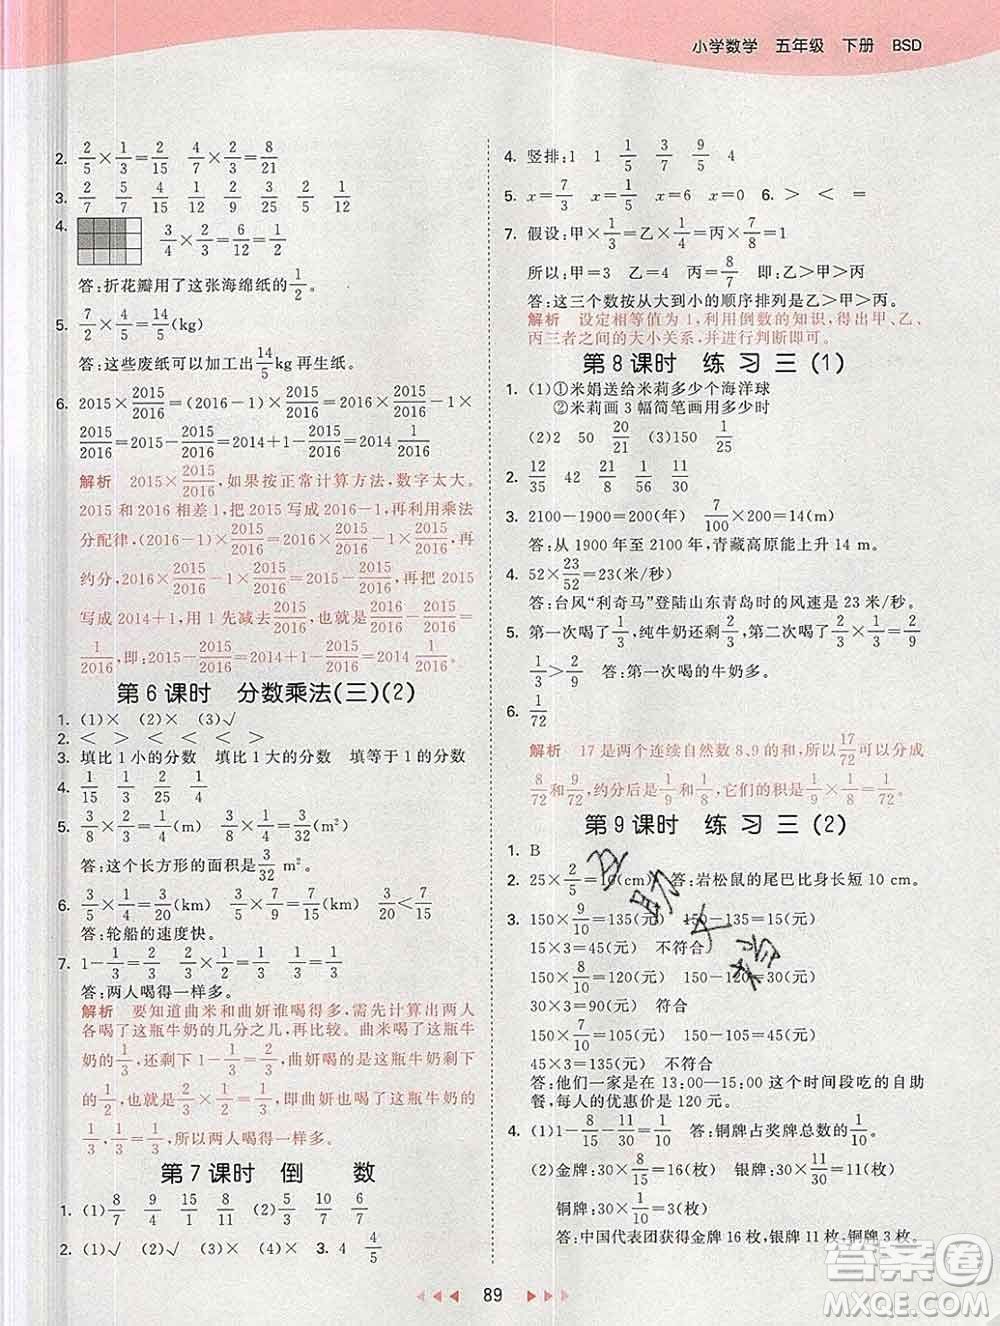 小学数学 五年级 下册 BSD
2. 2/5×1/3=2/15 4/7×2/3=8/21
3. 2/7 5/7 4/15 1/2 2/9 4/25 1/12
4. 3/4×2/3=6/12=1/2
答:折花瓣用了这张海绵纸的1/2。
5. 7/2×4/5=14/5(kg)
答:这些废纸可以加工出14/5kg 再生纸。
6. 2015×2015/2016=(2016-1)×2015/2016=2016×2015/2016-1×
2015/2016=2015-2015/2016=2014+1-2015/2016=2014 1/2016
解析 2015×2015/2016,如果按正常计算方法,数字太大。
2015 和 2016 相差 1,把 2015 写成 2016-1,再利用乘法
分配律,(2016-1)×2015/2016=2016×2015/2016-1×2015/2016,再
约分,2016×2015/2016-1×2015/2016=2015-2015/2016,再把 2015
写成 2014+1,用 1 先减去2015/2016,就是1-2015/2016=
1/2016,即:2015-2015/2016=2014 1/2016。
第 6 课时 分数乘法(三)(2)
1. (1)× (2)× (3)√
2. < > < >
3. 填比 1 小的分数 填比 1 大的分数 填等于 1 的分数
4. 1/15 1/3 2/25 1/4
5. 3/8×2/3=1/4(m) 3/8×1/4=3/32(m²)
答:这个长方形的面积是3/32 m²。
6. 1/5×3/4=3/20(km) 9/10×1/6=3/20(km) 3/20=3/20
答:轮船的速度快。
7. 1-1/3=2/3 2/3×1/2=1/3 1/3=1/3
答:两人喝得一样多。
解析 要知道曲米和曲妍谁喝得多,需先算出两人
各喝了这瓶牛奶的几分之几,再比较。曲米喝了这瓶牛
奶的1/3,还剩下1-1/3=2/3,曲妍喝了这瓶牛奶剩下
的1/2,2/3×1/2=1/3,即曲妍喝了这瓶牛奶的1/3,
1/3=1/3,所以两人喝得一样多。
第 7 课时 倒 数
1. (1)8/7 9/4 15/8 8/11 (2)8/7 1/13 1/6 6/7
2. (1)√ (2)√ (3)× (4)× 3. 4 4/5
4. 竖排:1 1 1/5 9/5 4
5. x=7/3 x=1/5 x=6 x=0 6. > < =
7. 假设:甲×1/3=乙×1/4=丙×7/8=1
所以:甲=3 乙=4 丙=8/7 即:乙>甲>丙
答:这三个数按从大到小的顺序排列是乙>甲>丙。
解析 设定相等值为 1,利用倒数的知识,得出甲、乙、
丙三者之间的大小关系,并进行判断即可。
第 8 课时 练 习 三 (1)
1. (1)①米娟送给米莉多少个海洋球
②米莉画 3 幅简笔画用多少时
(2)2 50 20/21 (3)150 1/25
2. 12/35 42 21/8 1/6 27/52
3. 2100-1900=200(年) 7/100×200=14(m)
答:从 1900 年至 2100 年,青藏高原能上升 14 m。
4. 52×23/52=23(米/秒)
答:台风“利奇马”登陆山东青岛时的风速是 23 米/秒。
5. 第一次喝了1/3,纯牛奶还剩2/3,第二次喝了2/3×1/3=2/9
1/3>2/9 答:第一次喝的牛奶多。
6. 1/72
解析 17 是两个连续自然数 8、9 的和,所以17/72可以分成
8/72和9/72,约分后是1/9和1/8,它们的积是1/9×1/8=1/72。
第 9 课时 练 习 三 (2)
1. B
2. 25×2/5=10(cm) 答:岩松鼠的尾巴比身长短 10 cm。
3. 150×9/10=135(元) 150-135=15(元)
15×3=45(元) 不符合
150×8/10=120(元) 150-120=30(元)
30×3=90(元) 符合
150×7/10=105(元) 150-105=45(元)
45×3=135(元) 不符合
答:他们一家是在 13:00—15:00 这个时间段吃的自助
餐,每人的优惠价是 120 元。
4. (1)1-8/15-11/30=1/10 答:铜牌占奖牌总数的1/10。
(2)金牌:30×8/15=16(枚) 银牌:30×11/30=11(枚)
铜牌:30×1/10=3(枚)
答:中国代表团获得金牌 16 枚,银牌 11 枚,铜牌 3 枚。
89
答案圈
MXQE.COM